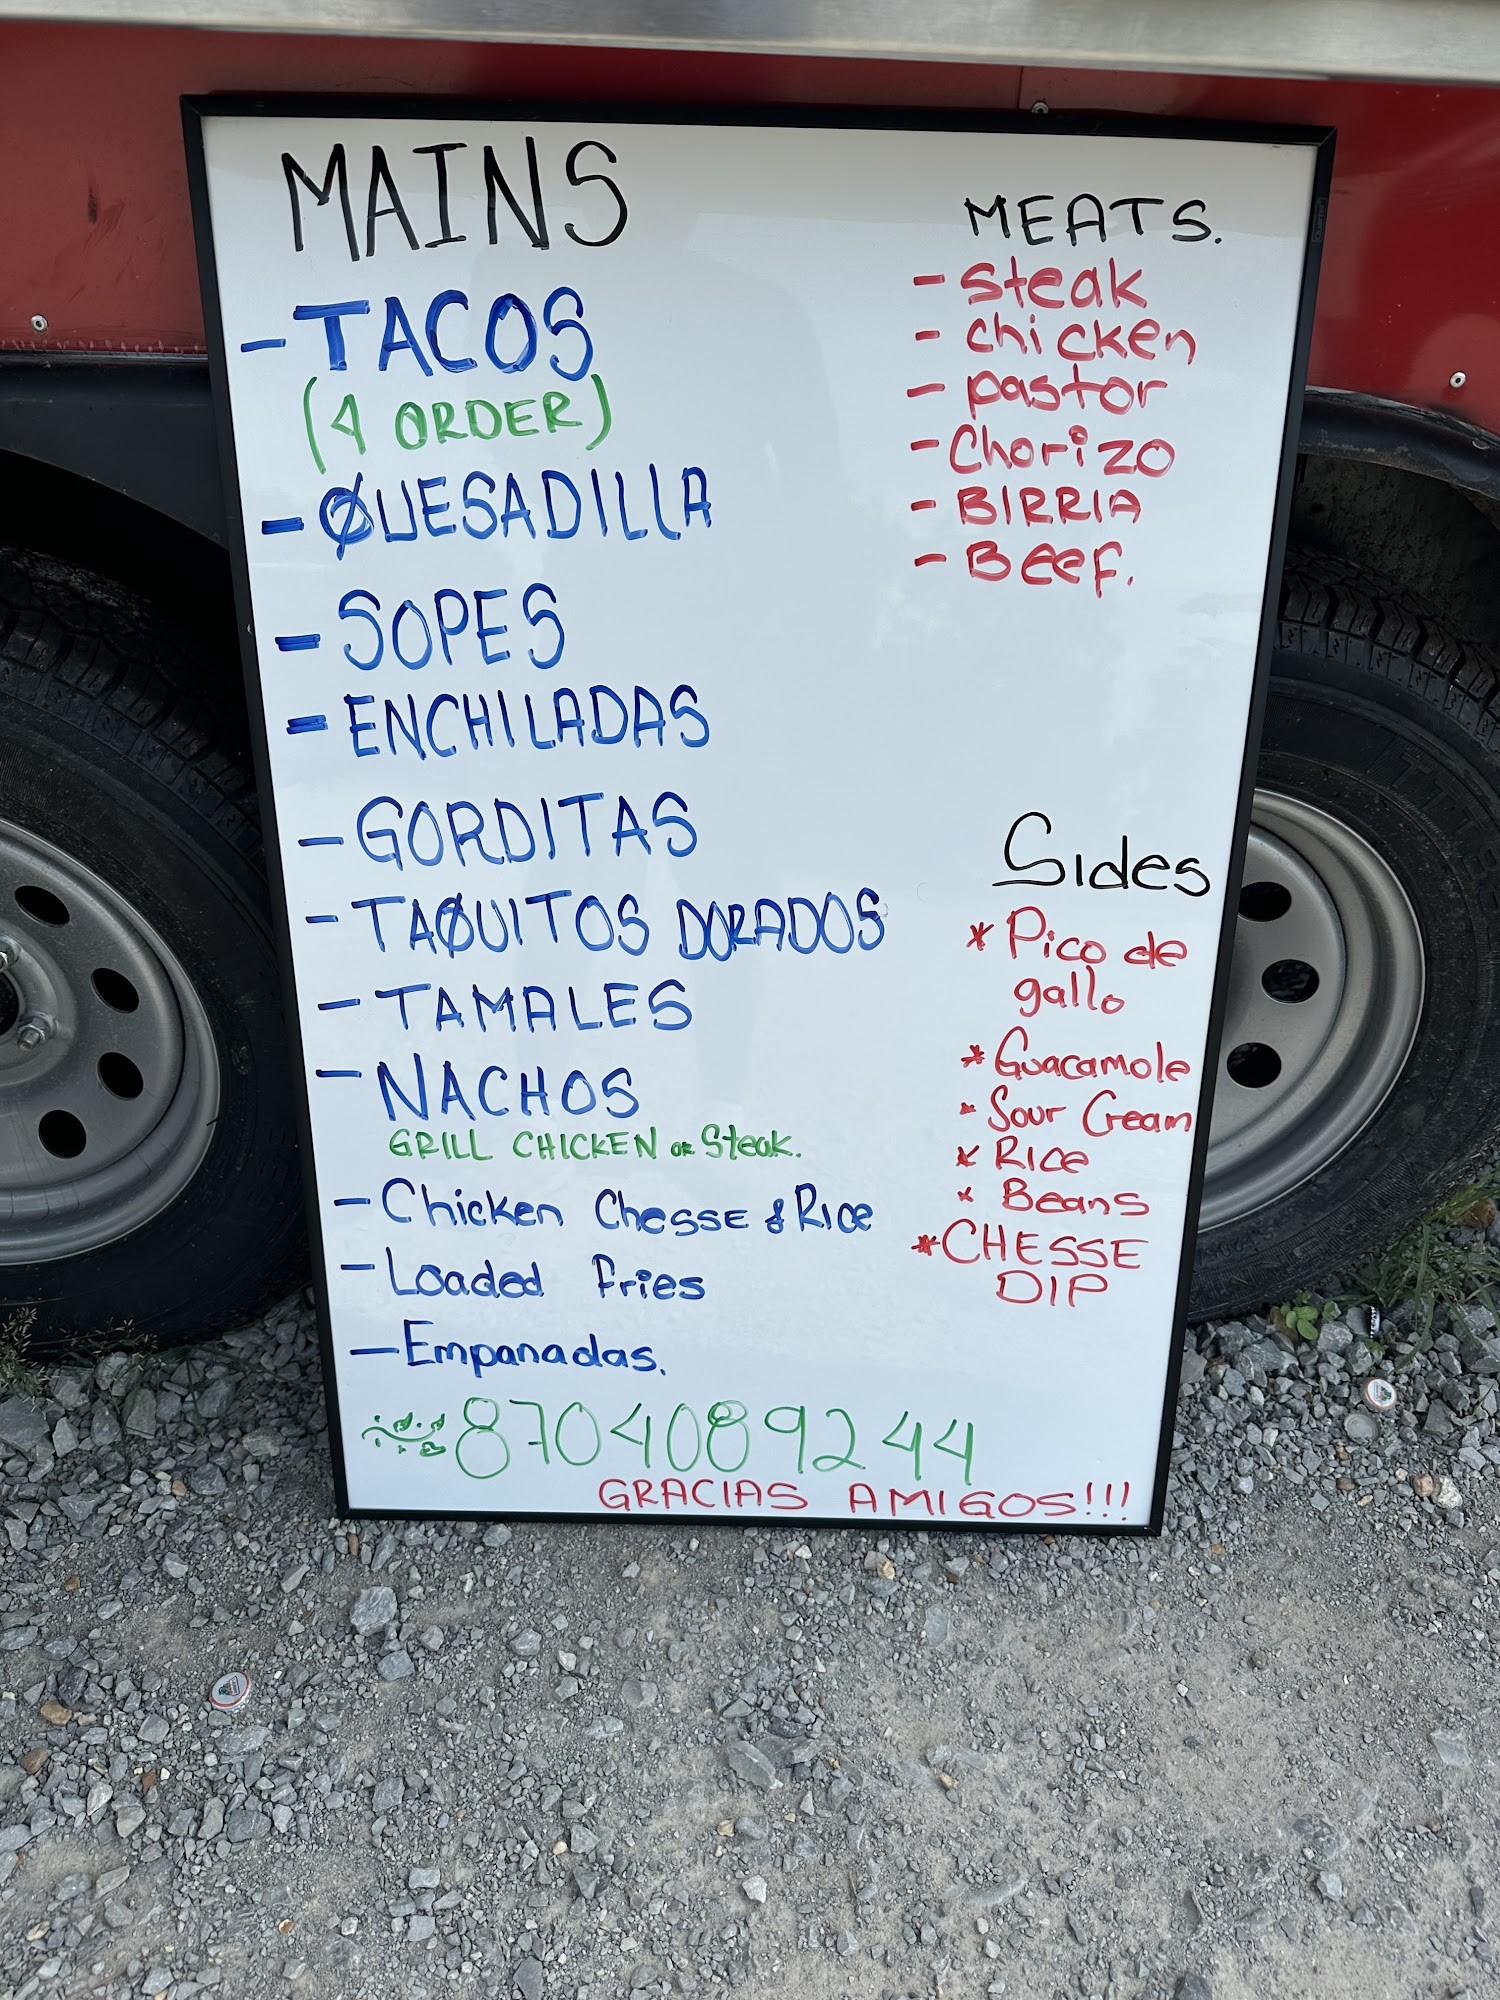 MAINS
- TACOS
(4 ORDER)
- QUESADILLA
- SOPES
- ENCHILADAS
- GORDITAS
- TAQUITOS DORADOS
- TAMALES
- NACHOS
GRILL CHICKEN or Steak.
- Chicken ChessE & Rice
- Loaded fries
- Empanadas.
MEATS.
- steak
- chicken
- pastor
- Chorizo
- BIRRIA
- Beef.
Sides
* Pico de
gallo
* Guacamole
* Sour Cream
* Rice
* Beans
* CHESSE
DIP
8704089244
GRACIAS AMIGOS!!!